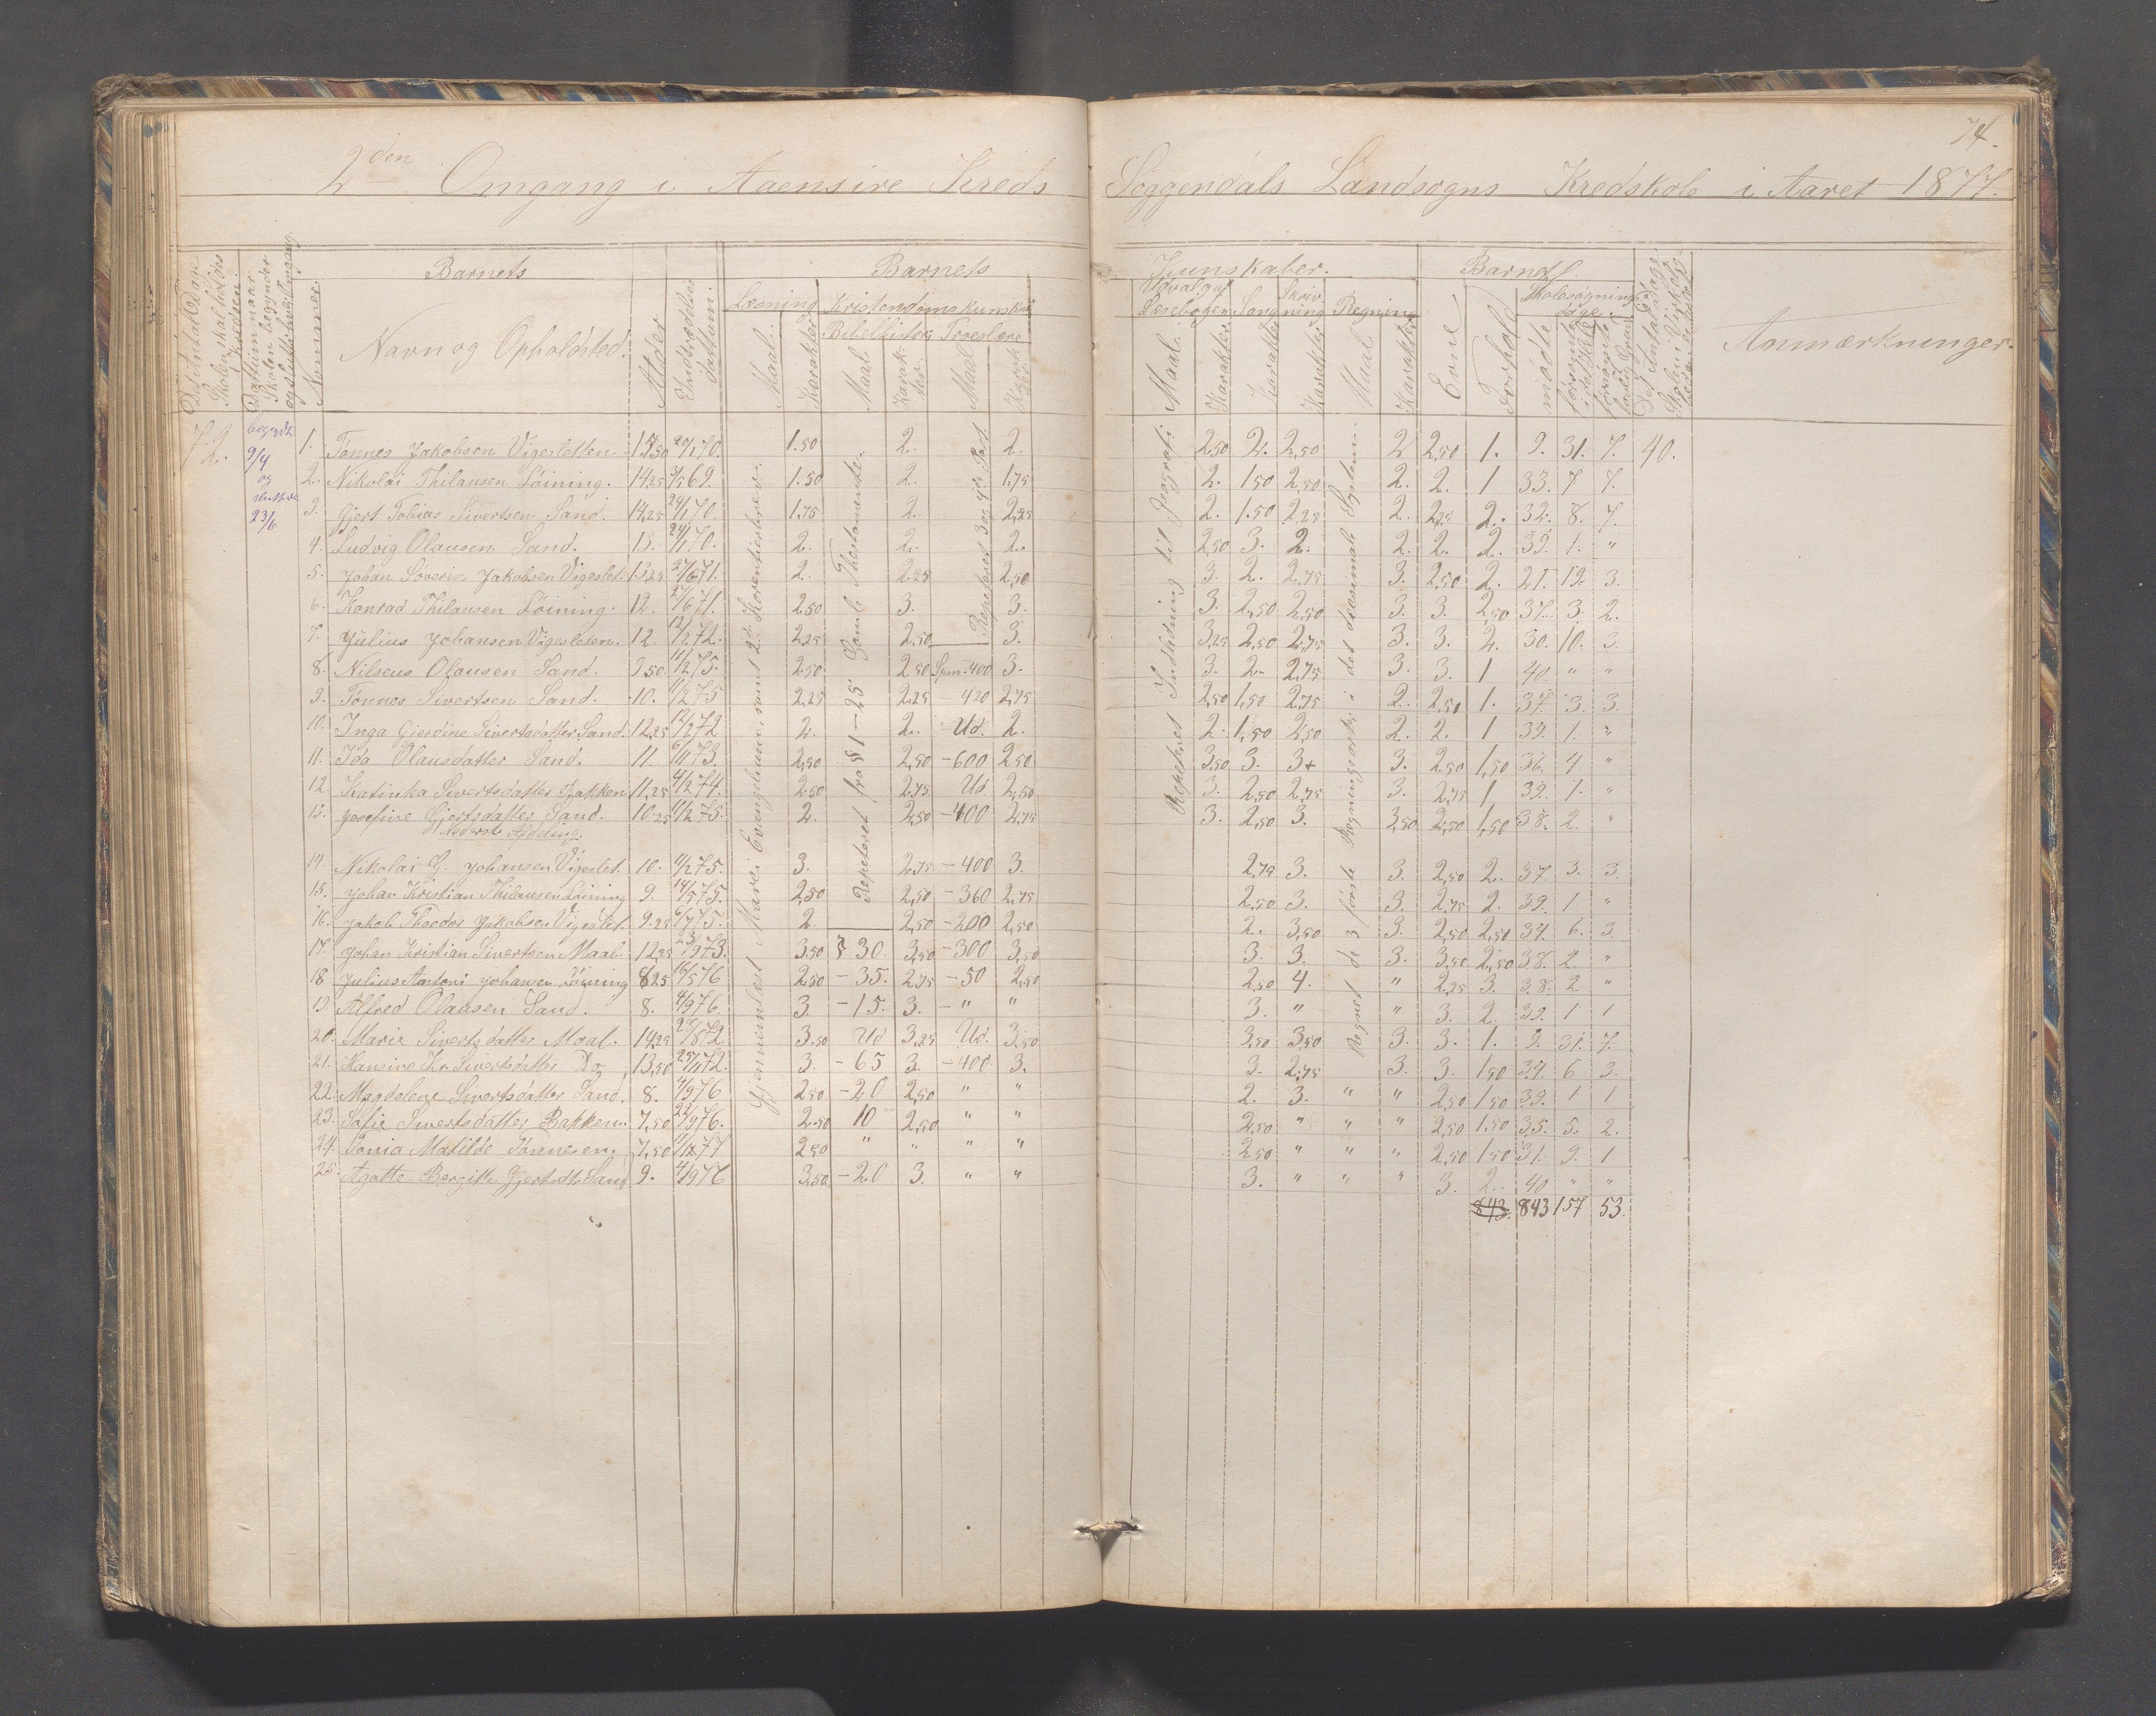 74.
2den Omgang i Aaensire Kreds Søggendals Landsogns Kredskole i Aaret 1877.
Barnets Barnets Kunskaber. Barnets
Nummer. Navn og Opholdsted. Alder Indtrædelses datum.
Læsning Kristendomskunskab Udvalg af Læsebogen Sang Skrivning Regning
Bibelhistori Troeslære
Maal. Karakter Maal. Karakter. Maal Karakter
Maal. Karakter Karakter Karakter Maal Karakter
Evne Forhold Skolesøgnings dage mødte Anmærkninger.
72 begyndt 9/4 og sluttede 23/6
Gjennemlæst Marci Evangelium, samt 2det Korentierbrev.
Repeteret fra § 1 – 25 Gamle Thestamente.
Repeteret 3 og 4de Part.
Repeteret Indledning til Geografi
Regnet de 3 første Regningsarter i det desimale System.
1. Tønnes Jakobsen Vigesletten. 13,50 20/1 70. 1.50 2. 2. 2,50 2. 2,50 2 2,50 1. 9. 31. 7. 40.
2. Nikolai Thilausen Löining. 14,25 3/5 69. 1.50 2. 1,75 2. 1 50 2,50 2. 2. 1 33. 7 7.
3. Gjert Tobias Sivertsen Sand. 14,25 24/1 70. 1.75 2. 2,25 2. 1.50 2,25 2. 2,25 2. 32. 8. 7.
4. Ludvig Olausen Sand. 13. 24/1 70. 2. 2. 2. 2,50 3. 2. 2. 2. 2. 39. 1. "
5. Johan Søverin Jakobsen Vigeslet. 13,25 27/6 71. 2. 2.25 2,50 3. 2. 2,75 3. 2,50 2. 21. 19. 3.
6. Konrad Thilausen Löining. 12. 27/6 71. 2,50 3. 3. 3. 2,50 2,50 3. 3. 2,50 37. 3. 2.
7. Julius Johansen Vigesleten. 12. 12/2 72. 2,25 2,50 3. 3,25 2,50 2,75 3. 3. 2. 30. 10. 3.
8. Nilseus Olausen Sand. 9 50 11/2 75. 2,50 2,50 Spm. 400 3. 3. 2. 2,75 3. 3. 1 40. " "
9. Tønnes Sivertsen Sand. 10. 11/2 75 2,25 2,25 – 420 2,75 2,50 1,50 2,75 2. 2,50 1. 37. 3. 3.
10. Inga Gjerdine Sivertsdatter Sand. 12,25 12/2 72 2. 2. Ud. 2. 2. 1,50 2,50 2. 2. 1 39. 1. "
11. Ida Olausdatter Sand. 11. 6/11 73. 2,50 2,50 – 600 2 50 3,50 3. 3+ 3. 2,50 1,50 36. 4 "
12. Katinka Sivertsdatter Bakken 11,25 4/2 74. 2.50 2,75 Ud 2,50 3. 2,50 2,75 3. 2,75 1 39. 1. "
13. Josefine Gjertsdatter Sand. 10,25 11/2 75. 2. 2,50 – 400 2,75 3. 2,50 3. 3,50 2,50 1,50 38. 2. "
Nederste Afdeling.
14. Nikolai G. Johansen Vigeslet. 10. 11/2 75. 3. 2,75 – 400 3. 2,75 3. 3. 2,50 2. 37. 3. 3.
15. Johan Kristian Thilausen Löining 9. 14/5 75. 2,50 2,50 – 360 2,75 2,50 3. 3. 2,75 2. 39. 1 "
16. Jakob Theodor Jakobsen Vigeslet. 9.25 6/7 75. 2. 2,50 – 200 2,50 2. 3,50 3. 2,50 2,50 37. 6. 3
17. Johan Kristian Sivertsen Maal. 12,25 23/9 73. 3,50 § 30. 3,50 – 300 3,50 3. 3. 3. 3,50 2,50 38. 2. "
18 Julius Antoni Johansen Löining 8,25 16/5 76 2,50 – 35. 2,75 – 50 2,50 2,50 4. " 2,25 3. 38. 2 "
19. Alfred Olausen Sand. 8. 4/9 76. 3. – 15. 3. – " " 3. " " 3. 2. 39. 1 1
20. Marie Sivertsdatter Maal. 14,25 27/8 72 3,50 Ud 3,25 Ud. 3,50 3,50 3,50 3. 3. 1. 9. 31. 7.
21. Hansine Kr. Sivertsdatter Do 13,50 25/11 72. 3. – 65 3. – 400 3. 3. 2,75 3. 3. 1 50 34. 6 3.
22. Magdelene Sivertsdatter Sand. 8. 4/9 76 2,50 – 20 2,50 " " 2. 3. " " 2,50 1 50 39. 1 1
23. Sofie Sivertsdatter Bakken. 7,50 22/9 76. 2.50 10 2,50 " " 2,50 " " " 2,50 1.50 35. 5. 2.
24. Tonia Matilde Tønnesen. 7,50 2 50 " " " " 2 50 " " " 2,50 1 50 31. 9. 1
25. Agatte Bergitte Gjertsdtr Sand 9. 4/9 76 3,50 – 20 3. " " 3. " " " 3. 2. 40 " "
843. 843 157 53.